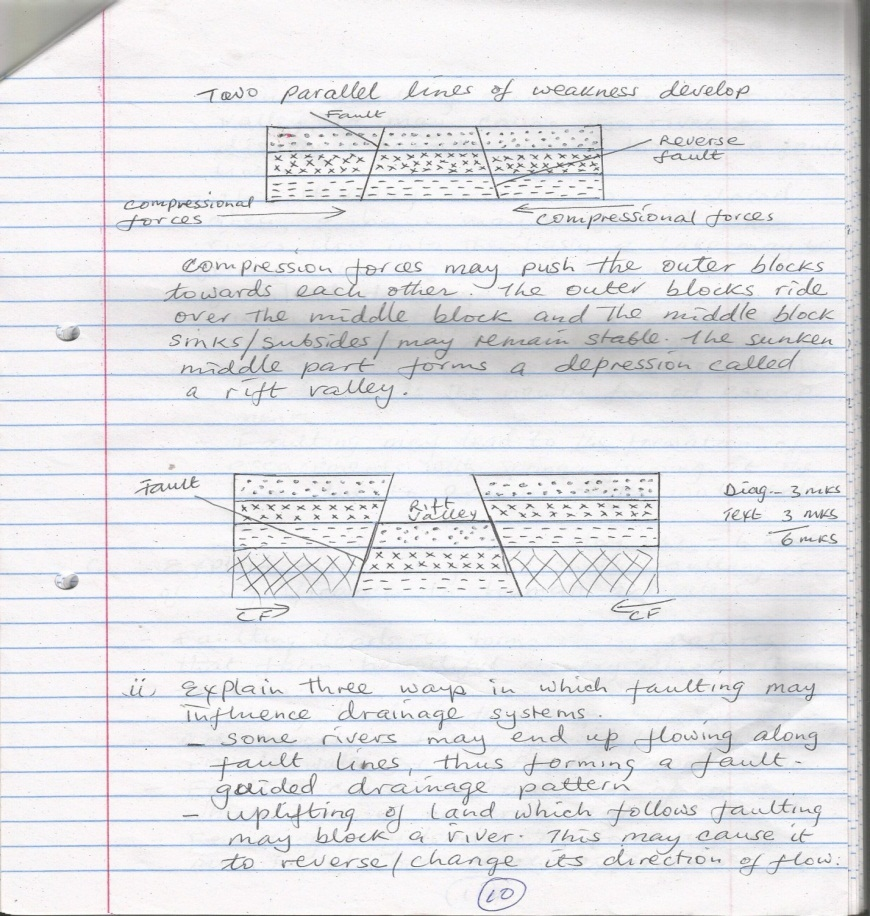 Two parallel lines of weakness develop
Fault
Reverse
fault
compressional
forces
compressional forces
compression forces may push the outer blocks
towards each other. The outer blocks ride
over the middle block and the middle block
sinks/subsides/may remain stable. The sunken
middle part forms a depression called
a rift valley.
Fault
Rift
valley
Diag - 3 mks
Text 3 mks
6 mks
CF
CF
ii, Explain three ways in which faulting may
influence drainage systems.
- some rivers may end up flowing along
fault lines, thus forming a fault-
guided drainage pattern
- uplifting of land which follows faulting
may block a river. This may cause it
to reverse/change its direction of flow.
10